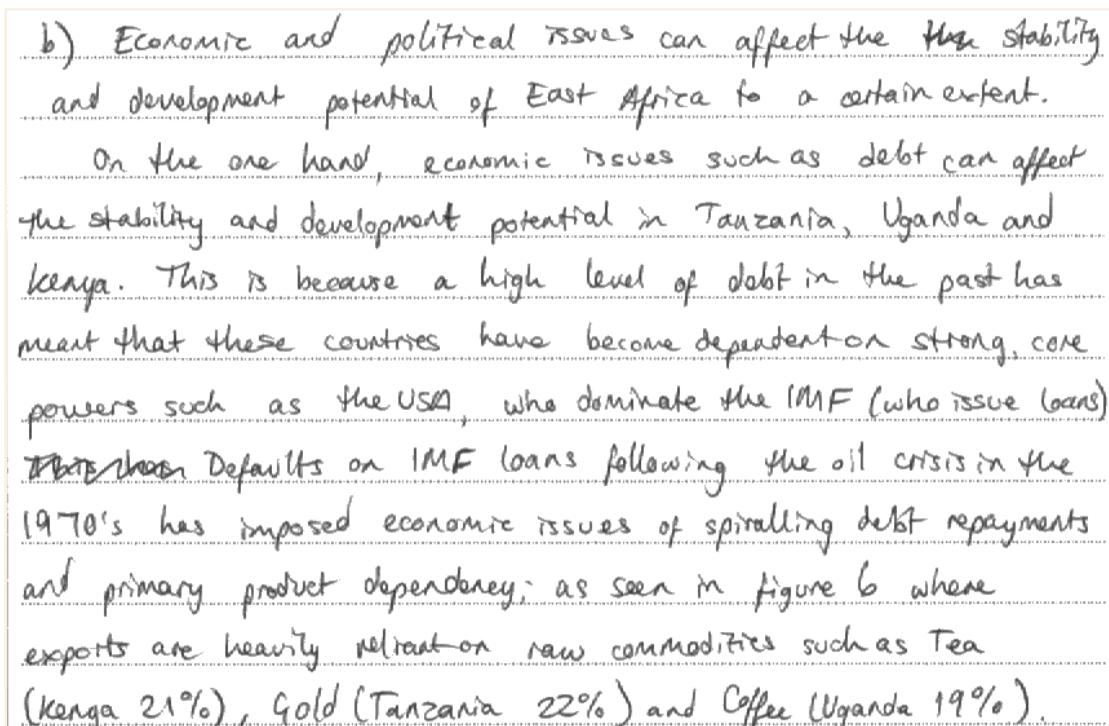 b) Economic and political issues can affect the the stability
and development potential of East Africa to a certain extent.
On the one hand, economic issues such as debt can affect
the stability and development potential in Tanzania, Uganda and
Kenya. This is because a high level of debt in the past has
meant that these countries have become dependent on strong, core
powers such as the USA, who dominate the IMF (who issue loans)
Defaults on IMF loans following the oil crisis in the
1970's has imposed economic issues of spiralling debt repayments
and primary product dependency; as seen in figure 6 where
exports are heavily reliant on raw commodities such as Tea
(Kenya 21%), Gold (Tanzania 22%) and Coffee (Uganda 19%).